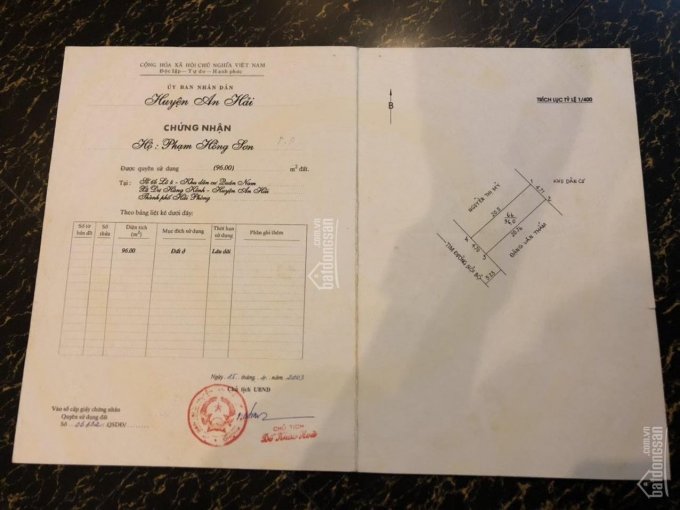 CỘNG HÒA XÃ HỘI CHỦ NGHĨA VIỆT NAM
Độc lập - Tự do - Hạnh phúc
ỦY BAN NHÂN DÂN
Huyện An Hải
CHỨNG NHẬN
Hộ : Phạm Hồng Sơn
Được quyền sử dụng (96.00) m² đất.
Tại : Số 66 Lô 4 - Khu dân cư Quán Nam
Xã Dư Hàng Kênh - Huyện An Hải
Thành phố Hải Phòng
Theo bảng liệt kê dưới đây:
Số tờ bản đồ Số thửa Diện tích (m²) Mục đích sử dụng Thời hạn sử dụng Phần ghi thêm
96.00 Đất ở Lâu dài
Ngày 15 tháng 4 năm 2003
Chủ tịch UBND
Vào sổ cấp giấy chứng nhận
Quyền sử dụng đất
Số QSDĐ/
CHỦ TỊCH
B
TRÍCH LỤC TỶ LỆ 1/400
NGUYỄN THỊ MỸ
KHU DÂN CƯ
ĐẶNG VĂN THẮNG
TIM ĐƯỜNG NỘI BỘ
1
2
3
4
4.71
20.5
66
96.0
20.36
5.25
batdongsan
.com.vn
batdongsan
.com.vn